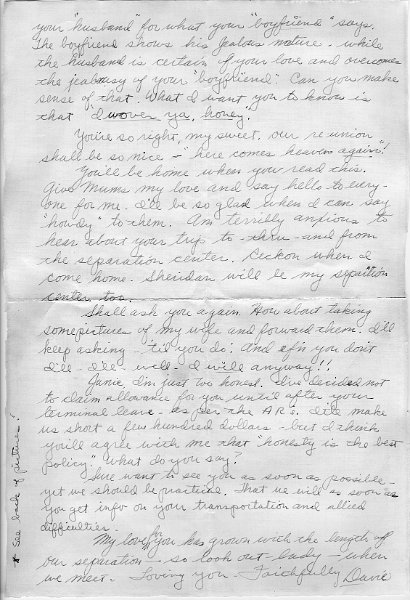 your "husband" for what your "boyfriend" says.
The boyfriend shows his jealous nature - while
the husband is certain of your love and overcomes
the jealousy of your "boyfriend". Can you make
sense of that. What I want you to know is
that "I wover ya, honey."
You're so right, my sweet, our reunion
shall be so nice - "here comes heaven again"!
You'll be home when you read this.
Give Mums my love and say hello to every-
one for me. I'll be so glad when I can say
"howdy" to them. Am terribly anxious to
hear about your trip to - thru - and from
the separation center. Reckon when I
come home - Sheridan will be my separation
center too.
Shall ask you again. How about taking
some pictures of my wife and forward them. I'll
keep asking - 'til you do. And ef'n you don't
I'll - I'll - well - I will anyway!!
Janie, I'm just too honest. I've decided not
to claim allowance for you until after your
terminal leave - as per the AR's. It'll make
us short a few hundred dollars - but I think
you'll agree with me that "honesty is the best
policy". What do you say?
Sure want to see you as soon as possible -
yet we should be practical. That we will as soon as
you get info on your transportation and allied
difficulties.
My love for you has grown with the length of
our separation - so look out - lady - when
we meet. Loving you - Faithfully Dave
* See back of pictures!